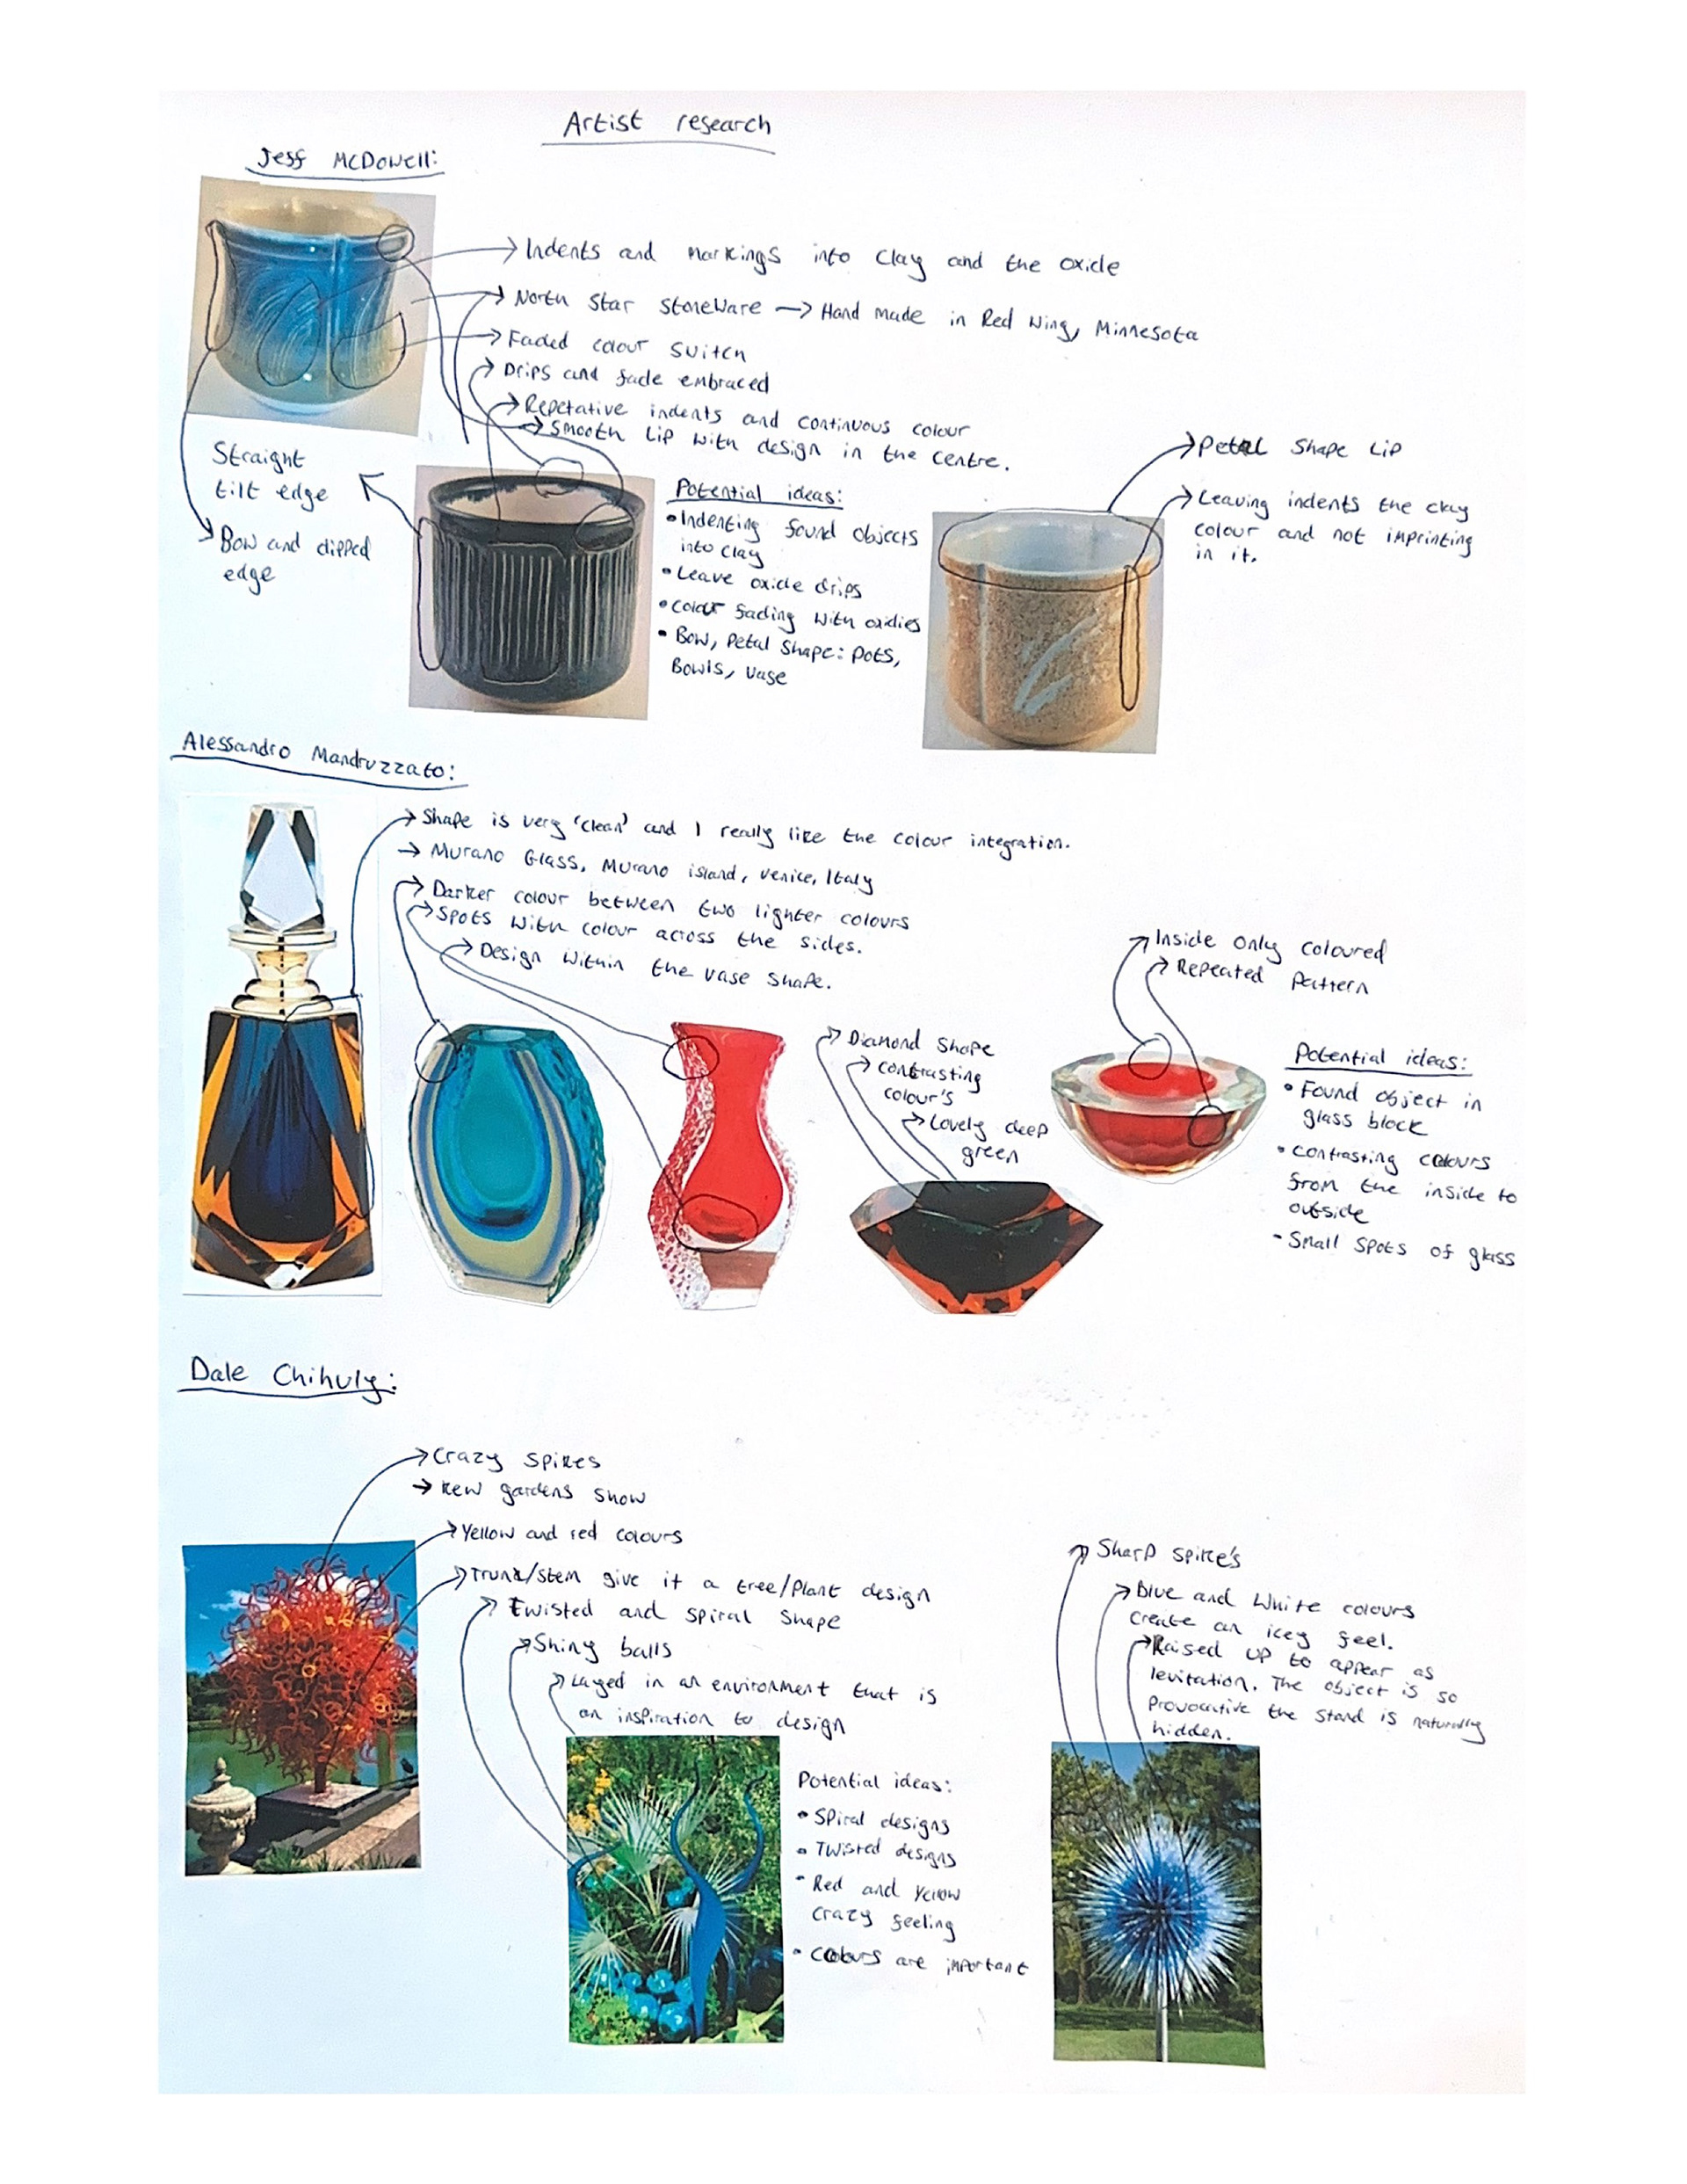 Artist research
Jeff McDowell:
Indents and markings into clay and the oxide
North Star Stoneware → Hand made in Red Wing, Minnesota
Faded colour switch
Drips and fade embraced
Repetative indents and continuous colour
Smooth lip with design in the centre.
Straight
tilt edge
Bow and dipped
edge
Potential ideas:
• Indenting found objects
into clay
• Leave oxide drips
• colour fading with oxidies
• Bow, petal shape: pots,
Bowls, vase
Petal shape lip
Leaving indents the clay
colour and not imprinting
in it.
Alessandro Mandruzzato:
Shape is very 'clean' and I really like the colour integration.
→ Murano Glass, Murano island, Venice, Italy
Darker colour between two lighter colours
Spots with colour across the sides.
Design within the vase shape.
Diamond shape
contrasting
colour's
Lovely deep
green
Inside only coloured
Repeated pattern
Potential ideas:
• Found object in
glass block
• contrasting colours
from the inside to
outside
- Small spots of glass
Dale Chihuly:
Crazy spikes
→ Kew gardens show
Yellow and red colours
Trunk/stem give it a tree/plant design
Twisted and spiral shape
Shiny balls
Layed in an environment that is
an inspiration to design
Potential ideas:
• Spiral designs
• Twisted designs
• Red and yellow
crazy feeling
• Colours are important
Sharp spike's
Blue and white colours
create an icey feel.
Raised up to appear as
levitation. The object is so
provocative the stand is naturally
hidden.